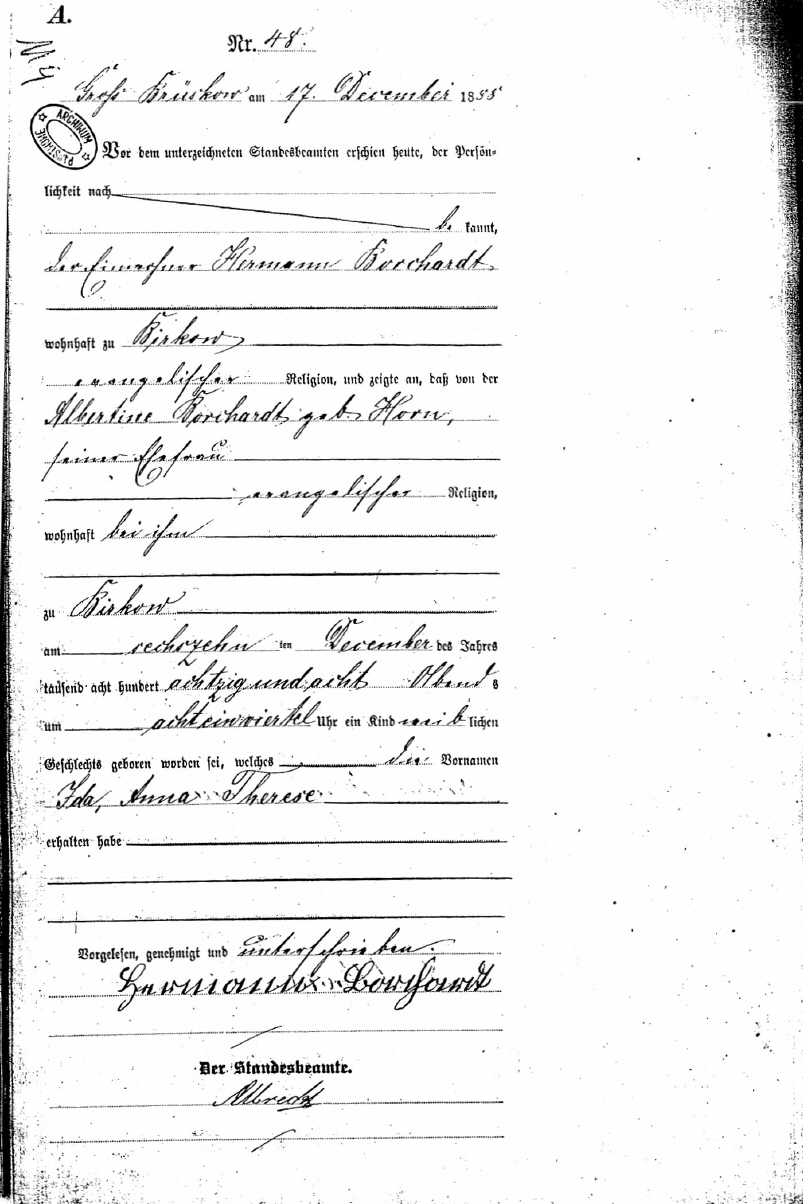 A.
Nr. 48.
Groß Krüskow am 17. December 1888
ARCHIWUM
Vor dem unterzeichneten Standesbeamten erschien heute, der Persön=
lichkeit nach
be kannt,
der Einwohner Hermann Borchardt
wohnhaft zu Kirkow
evangelischer Religion, und zeigte an, daß von der
Albertine Borchardt geb Horn,
seiner Ehefrau
evangelischer Religion,
wohnhaft bei ihm
zu Kirkow
am sechszehn ten December des Jahres
tausend acht hundert achtzig und acht Abends
um acht ein viertel Uhr ein Kind weib lichen
Geschlechts geboren worden sei, welches die Vornamen
Ida, Anna Therese
erhalten habe
Vorgelesen, genehmigt und unterschrieben.
Hermann Borchardt
Der Standesbeamte.
Albrecht